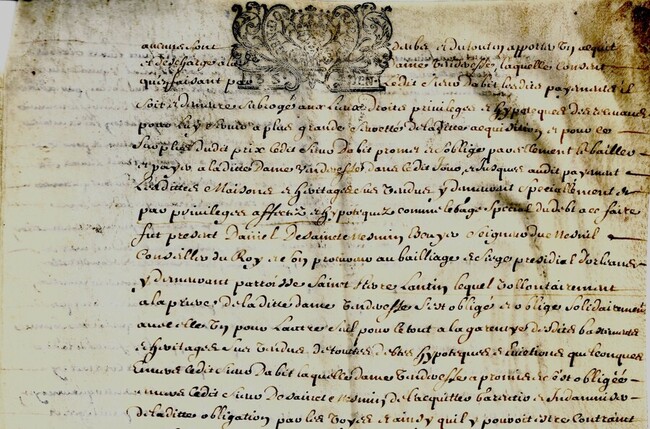 aucuns sont deubs et du tout en apporter un acquit
et descharge a la dame venderesse, laquelle consent
que faisant par ledit sieur Dabit lesdits payements il
soit et demeure subrogé aux lieux droits privileges et hypoteques des
pour luy et ses a plus grande seureté de laditte acquisition et pour le
surplus dudit prix ledit sieur Dabit promet et oblige pareillement le bailler
et payer a laditte dame venderesse dans ledit Jour, et Jusques audit payment
lesdittes Maisons et heritages sus vendus y demeurent speciallement et
par privileges affectez et hypotequez comme le gage special du debt a ce faire
fut present Daniel De Sainct Mesmin Escuyer seigneur du Mesnil
Conseiller du Roy et son procureur au bailliage et siege presidial dorleans
y demeurant parroisse Sainct Pierre Lantin lequel vollontairement
a la priere de laditte dame venderesse sest obligé et oblige solidairement
avec elle un pour Lautre et seul pour le tout a la garentye desdits bastiments
et heritages sus vendus de touttes debtes hypoteques et Evictions quelconques
Envers ledit sieur Dabit laquelle dame venderesse a promis et sest obligée
envers ledit sieur de Sainct Mesmin de lacquitter garentir et Indamniser
de laditte obligation par les voyes et ainsy quil y pouroit estre Contraint